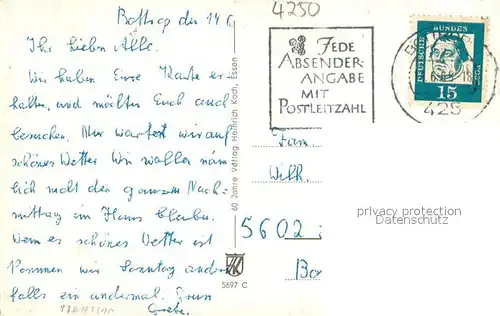 4250
Bottrop den 14 6.
Ihr lieben Alle.
Wir haben Eure Karte er-
halten, und möchten Euch auch
besuchen. Nur wartet wir auf
schönes Wetter Wir wollen näm
lich nicht den ganzen Nach-
mittag im Haus bleiben.
Wenn es schönes Wetter ist
kommen wir Sonntag andern
falls ein andermal. Gruss
Grete.
60 Jahre Verlag Heinrich Koch, Essen
5697 C
JEDE
ABSENDER-
ANGABE
MIT
POSTLEITZAHL
DEUTSCHE BUNDESPOST
15
425
Fam.
Wilh.
5602
privacy protection
Datenschutz